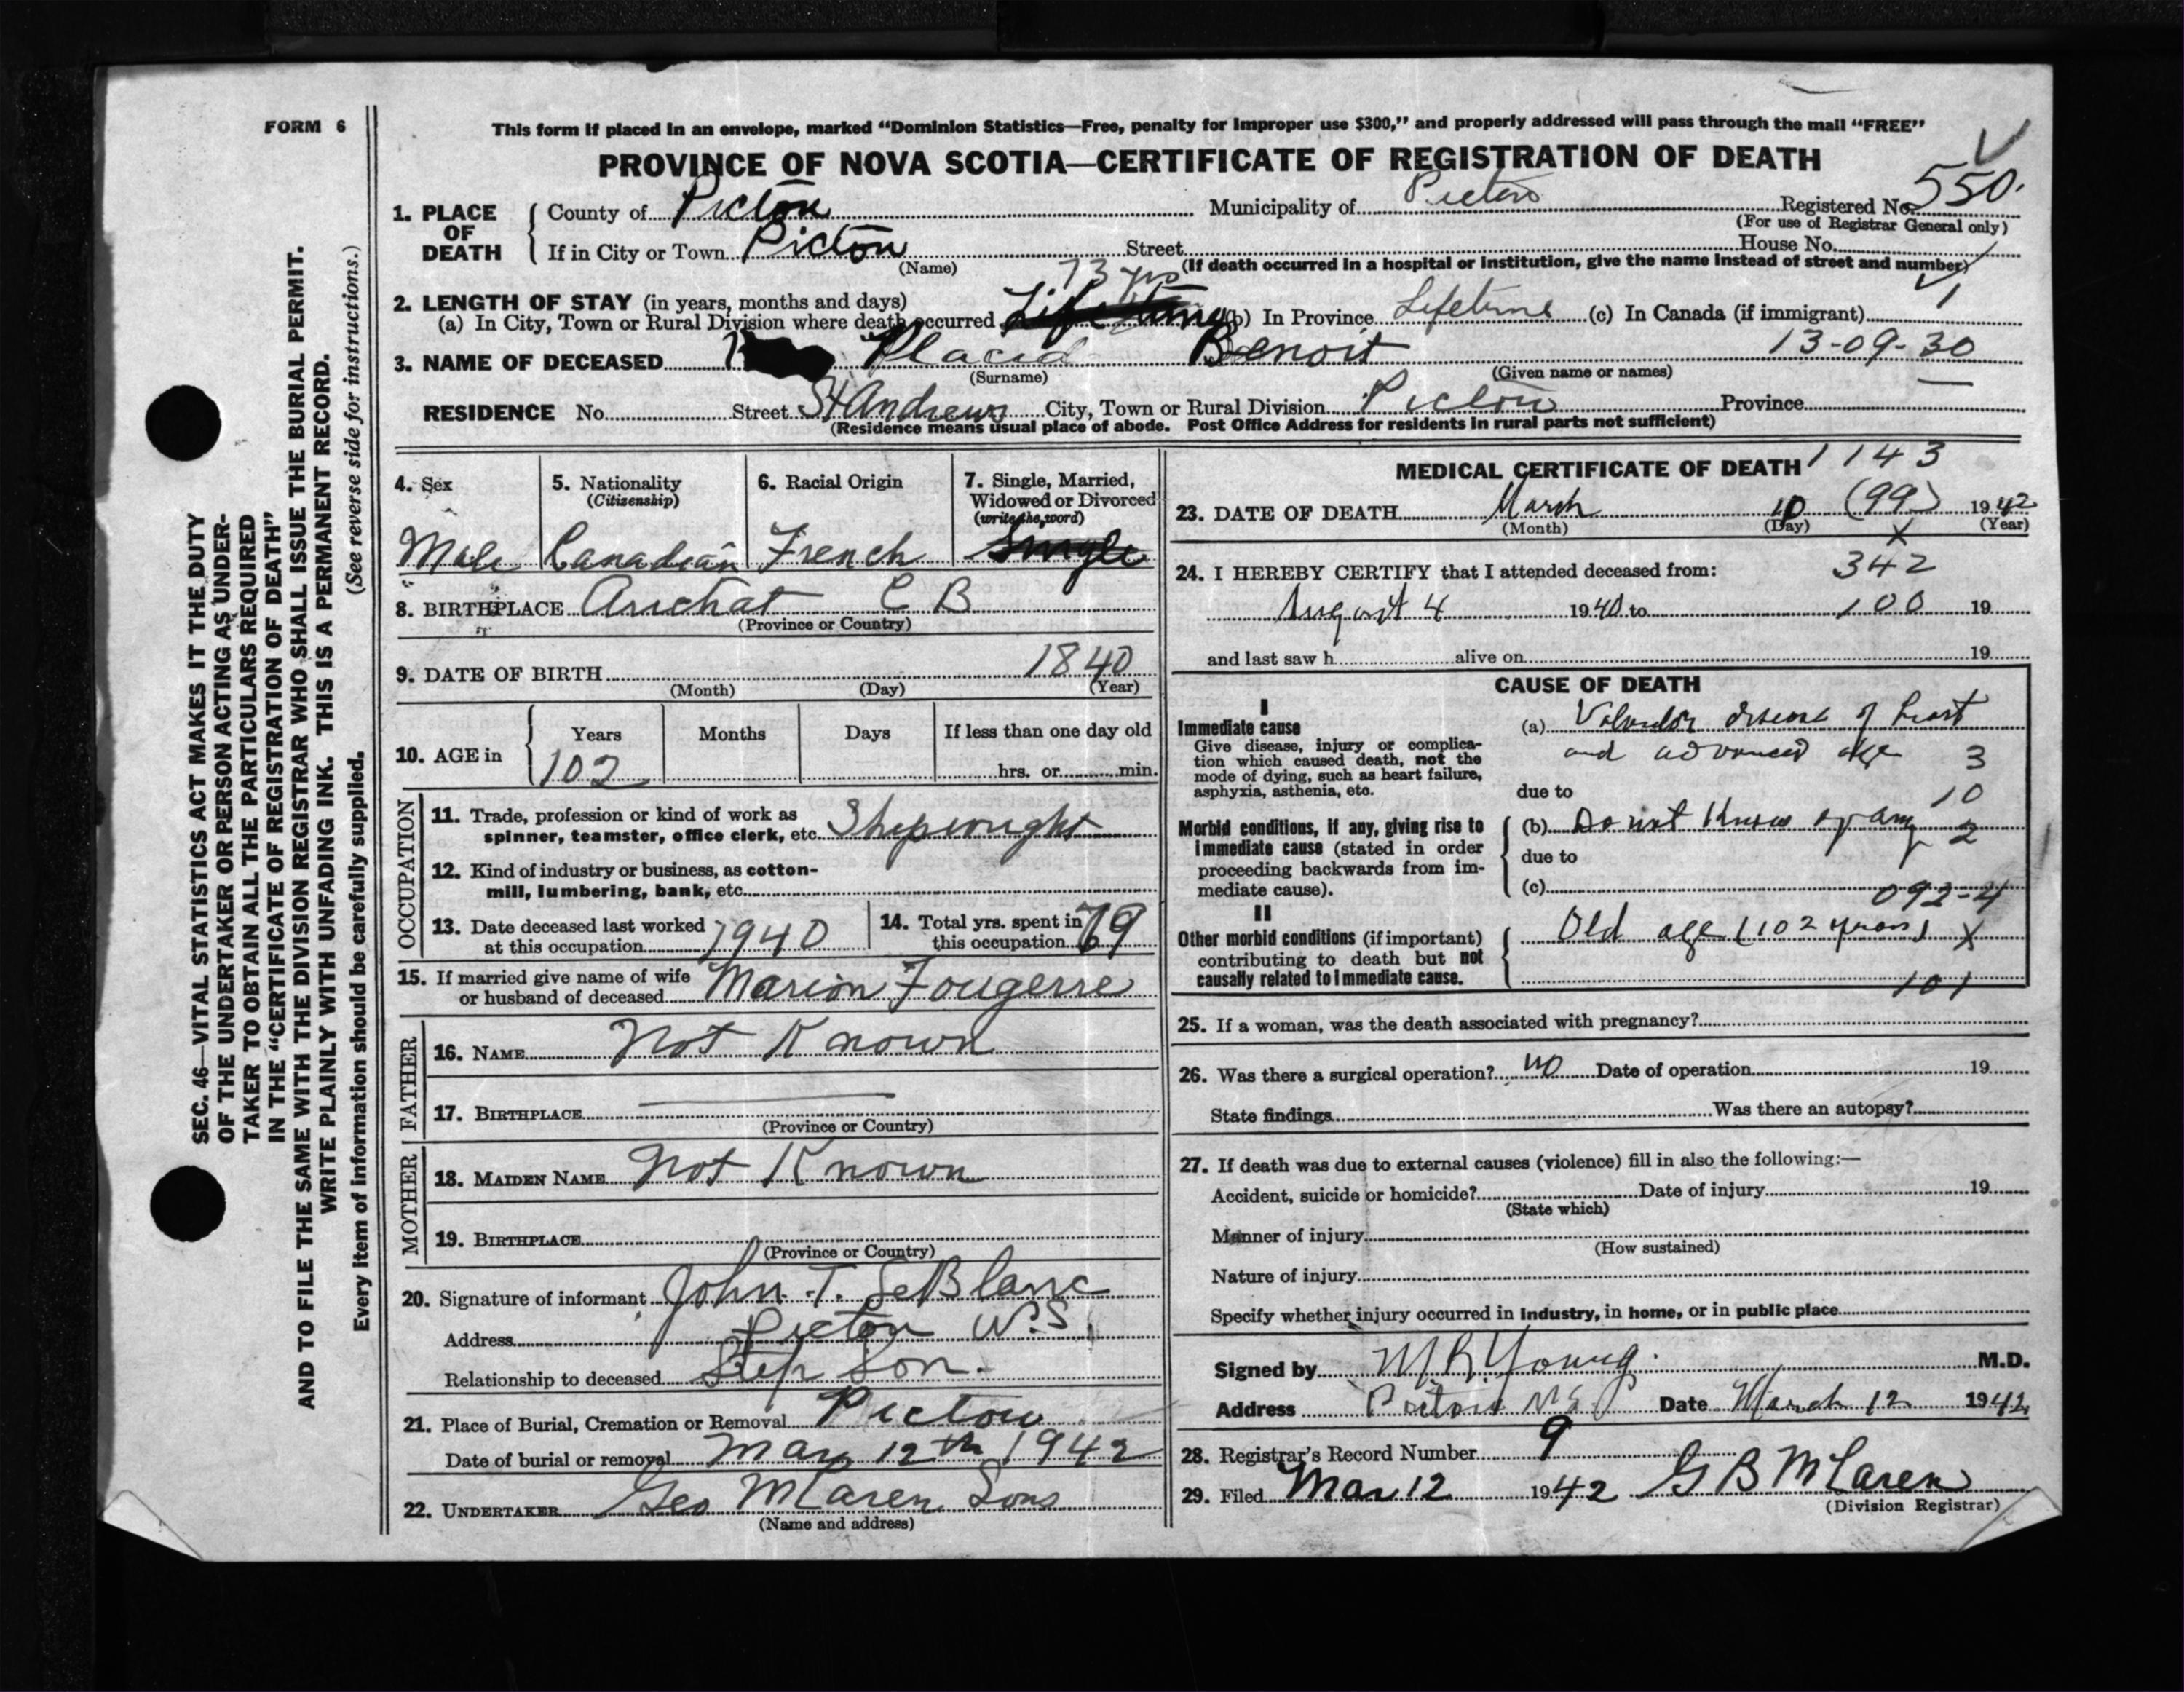 FORM 6
This form if placed in an envelope, marked "Dominion Statistics—Free, penalty for improper use $300," and properly addressed will pass through the mail "FREE"
PROVINCE OF NOVA SCOTIA—CERTIFICATE OF REGISTRATION OF DEATH
1. PLACE OF DEATH { County of Pictou Municipality of Pictou Registered No. 550.
(For use of Registrar General only)
If in City or Town Pictou Street House No.
(Name) (If death occurred in a hospital or institution, give the name instead of street and number)
73 yrs
2. LENGTH OF STAY (in years, months and days)
(a) In City, Town or Rural Division where death occurred Lifetime (b) In Province Lifetime (c) In Canada (if immigrant)
3. NAME OF DECEASED Placid Benoit 13-09-30
(Surname) (Given name or names)
RESIDENCE No. Street St Andrews City, Town or Rural Division Pictou Province
(Residence means usual place of abode. Post Office Address for residents in rural parts not sufficient)
4. Sex 5. Nationality (Citizenship) 6. Racial Origin 7. Single, Married, Widowed or Divorced (write the word)
Male Canadian French Single
8. BIRTHPLACE Arichat C B
(Province or Country)
9. DATE OF BIRTH 1840
(Month) (Day) (Year)
10. AGE in { Years Months Days If less than one day old
102 hrs. or min.
OCCUPATION
11. Trade, profession or kind of work as
spinner, teamster, office clerk, etc. Shipwright
12. Kind of industry or business, as cotton-
mill, lumbering, bank, etc.
13. Date deceased last worked
at this occupation 1940
14. Total yrs. spent in
this occupation 79
15. If married give name of wife
or husband of deceased Marion Fougerre
FATHER
16. NAME Not Known
17. BIRTHPLACE
(Province or Country)
MOTHER
18. MAIDEN NAME Not Known
19. BIRTHPLACE
(Province or Country)
20. Signature of informant John T. LeBlanc
Address Pictou N.S.
Relationship to deceased Step Son.
21. Place of Burial, Cremation or Removal Pictou
Date of burial or removal Mar 12th 1942
22. UNDERTAKER Geo McLaren Sons
(Name and address)
MEDICAL CERTIFICATE OF DEATH 1143
23. DATE OF DEATH March 10 (99) 1942
(Month) (Day) (Year)
X
24. I HEREBY CERTIFY that I attended deceased from: 342
August 4 1940 to 100 19
and last saw h alive on 19
CAUSE OF DEATH
I
Immediate cause (a) Valvular disease of heart
Give disease, injury or complica-
tion which caused death, not the
mode of dying, such as heart failure,
asphyxia, asthenia, etc.
and advanced age 3
due to 10
Morbid conditions, if any, giving rise to
immediate cause (stated in order
proceeding backwards from im-
mediate cause).
(b) Do not know of any 2
due to
(c) 092-4
II
Other morbid conditions (if important)
contributing to death but not
causally related to immediate cause.
Old age (102 years) X
101
25. If a woman, was the death associated with pregnancy?
26. Was there a surgical operation? no Date of operation 19
State findings Was there an autopsy?
27. If death was due to external causes (violence) fill in also the following:—
Accident, suicide or homicide? Date of injury 19
(State which)
Manner of injury
(How sustained)
Nature of injury
Specify whether injury occurred in industry, in home, or in public place
Signed by M R Young. M.D.
Address Pictou N.S. Date March 12 1942
28. Registrar's Record Number 9
29. Filed Mar 12 1942 G B McLaren
(Division Registrar)
SEC. 46—VITAL STATISTICS ACT MAKES IT THE DUTY
OF THE UNDERTAKER OR PERSON ACTING AS UNDER-
TAKER TO OBTAIN ALL THE PARTICULARS REQUIRED
IN THE "CERTIFICATE OF REGISTRATION OF DEATH"
AND TO FILE THE SAME WITH THE DIVISION REGISTRAR WHO SHALL ISSUE THE BURIAL PERMIT.
WRITE PLAINLY WITH UNFADING INK. THIS IS A PERMANENT RECORD.
Every item of information should be carefully supplied. (See reverse side for instructions.)